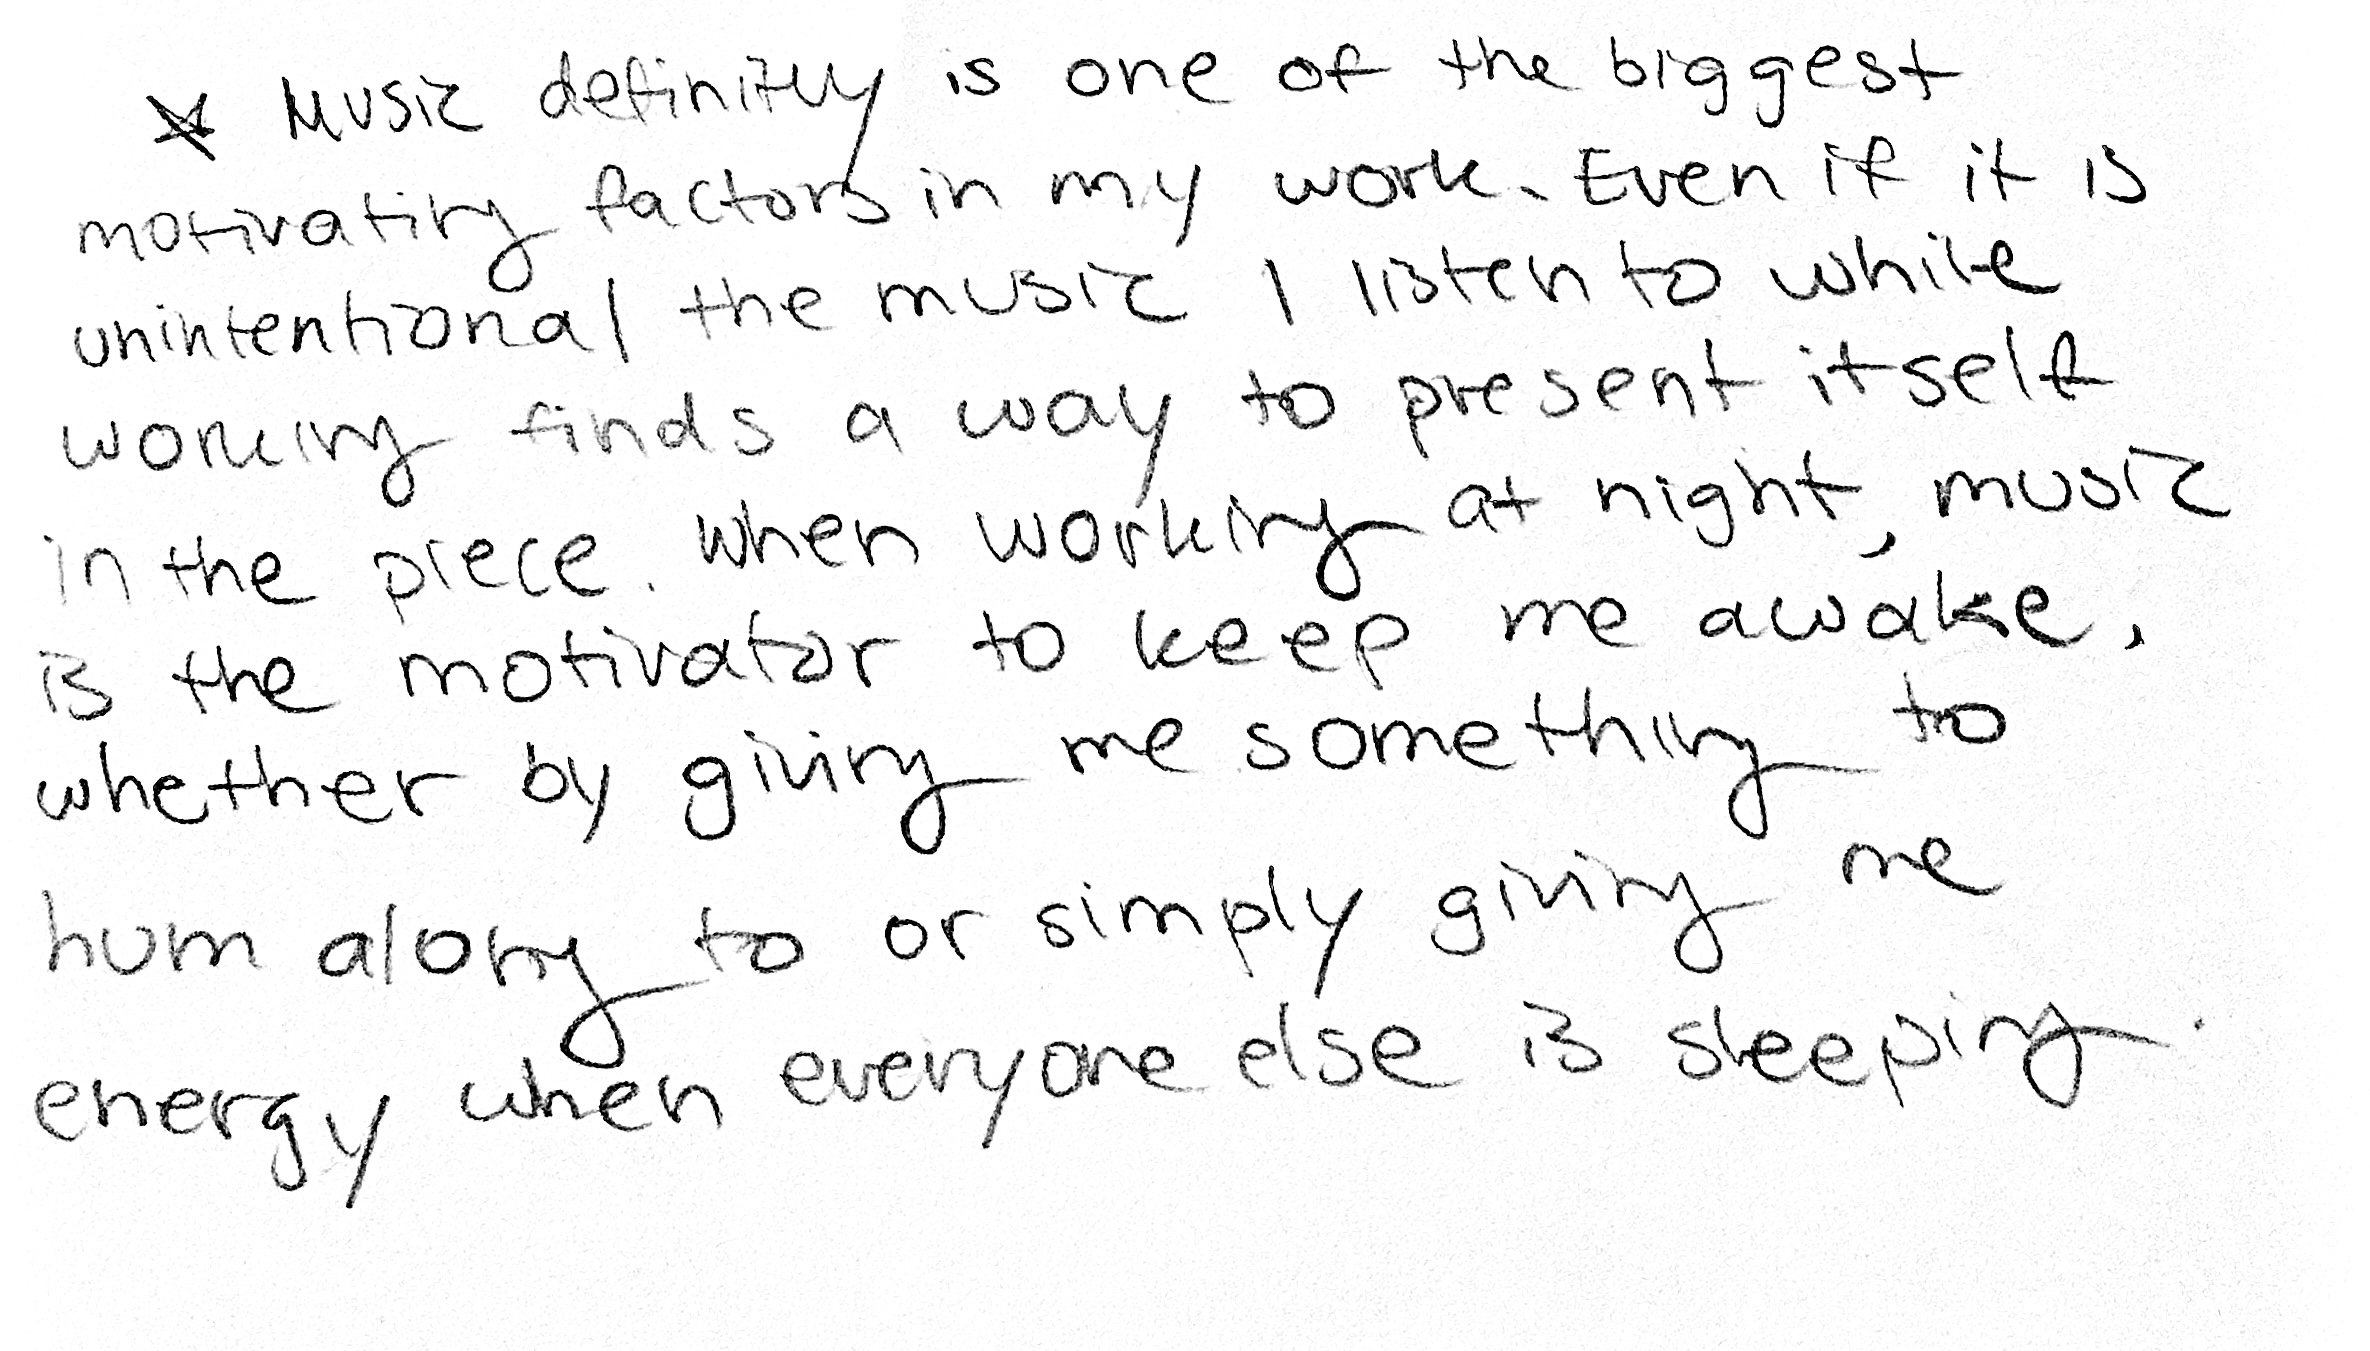 ☆ Music definitly is one of the biggest
motivating factors in my work. Even if it is
unintentional the music I listen to while
working finds a way to present itself
in the piece. When working at night, music
is the motivator to keep me awake,
whether by giving me something to
hum along to or simply giving me
energy when everyone else is sleeping.